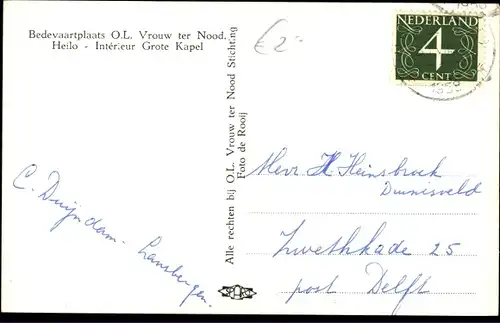 Bedevaartplaats O.L. Vrouw ter Nood.
Heilo - Intérieur Grote Kapel
€ 2-
NEDERLAND
4
CENT
C. Duijndam - Lansbergen.
Alle rechten bij O.L. Vrouw ter Nood Stichting
Foto de Rooij
Heer H. Heinsbroek
Duinisveld
Zwethkade 25
post Delft